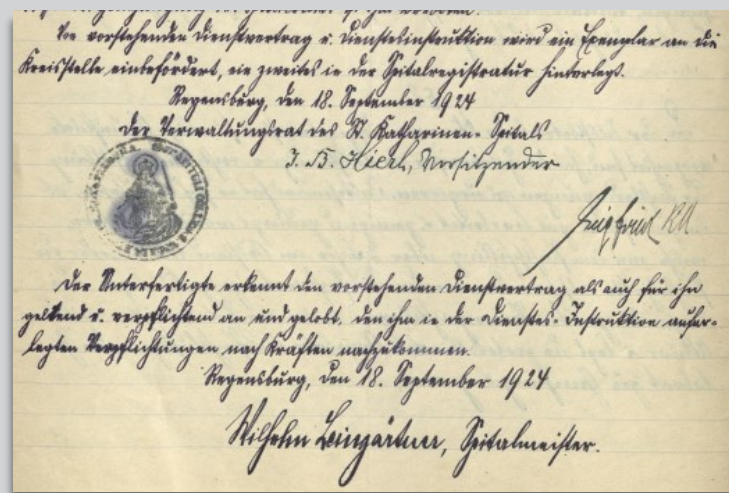 Von vorstehendem Dienstvertrag u. Dienstesinstruktion wird ein Exemplar an die
Kreisstelle einbefördert, ein zweites in der Spitalregistratur hinterlegt.
Regensburg, den 18. September 1924
Der Verwaltungsrat des St. Katharinen-Spitals
J. B. Hierl, Vorsitzender
Der Unterfertigte erkennt den vorstehenden Dienstvertrag als auch für ihn
geltend u. verpflichtend an und gelobt, den ihm in der Dienstes-Instruktion aufer-
legten Verpflichtungen nach Kräften nachzukommen.
Regensburg, den 18. September 1924
Wilhelm Weingärtner, Spitalmeister.